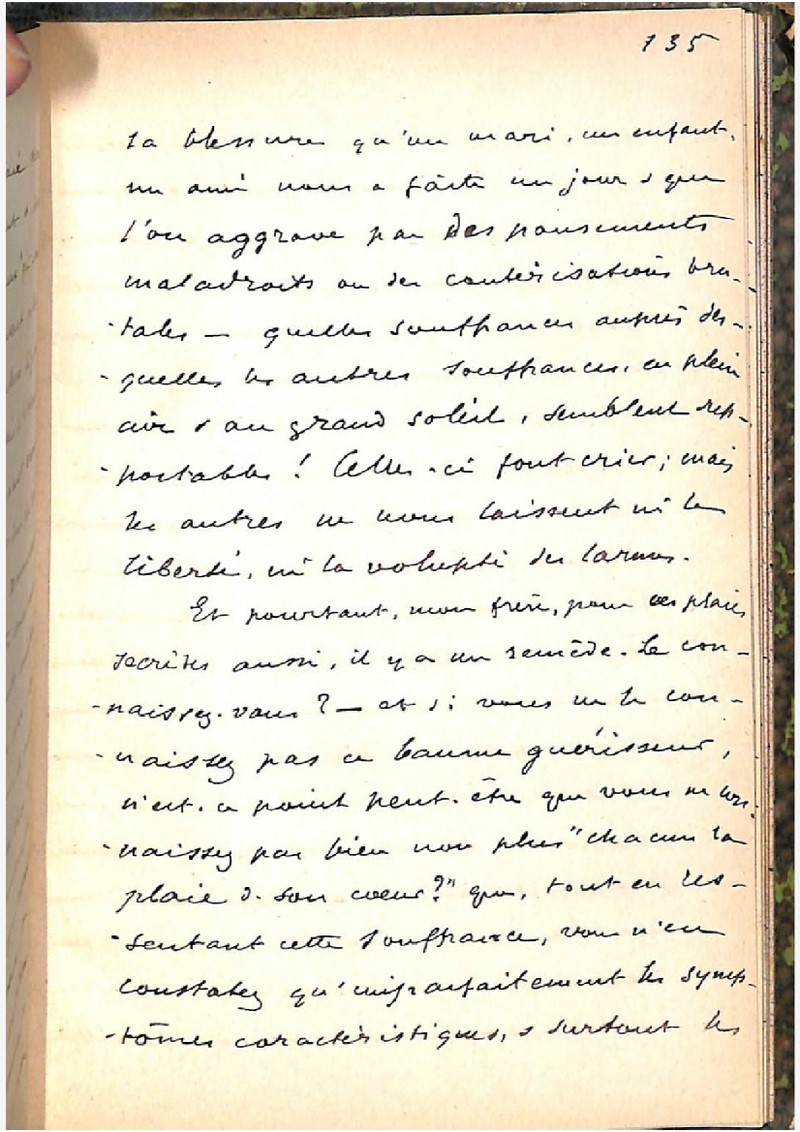 135
la blessure qu'un mari, un enfant,
un ami nous a faite un jour & que
l'on aggrave par des pansements
maladroits ou des cautérisations bru-
-tales — quelles souffrances auprès des-
-quelles les autres souffrances, en plein
air & au grand soleil, semblent sup-
-portables ! Celles-ci font crier ; mais
les autres ne nous laissent ni la
liberté, ni la volupté des larmes.
Et pourtant, mon frère, pour ces plaies
secrètes aussi, il y a un remède. Le con-
-naissez-vous ? — et si vous ne le con-
-naissez pas ce baume guérisseur,
n'est-ce point peut-être que vous ne con-
-naissez pas bien non plus "chacun la
plaie de son cœur ?" que, tout en res-
-sentant cette souffrance, vous n'en
constatez qu'imparfaitement les symp-
-tômes caractéristiques, & surtout les